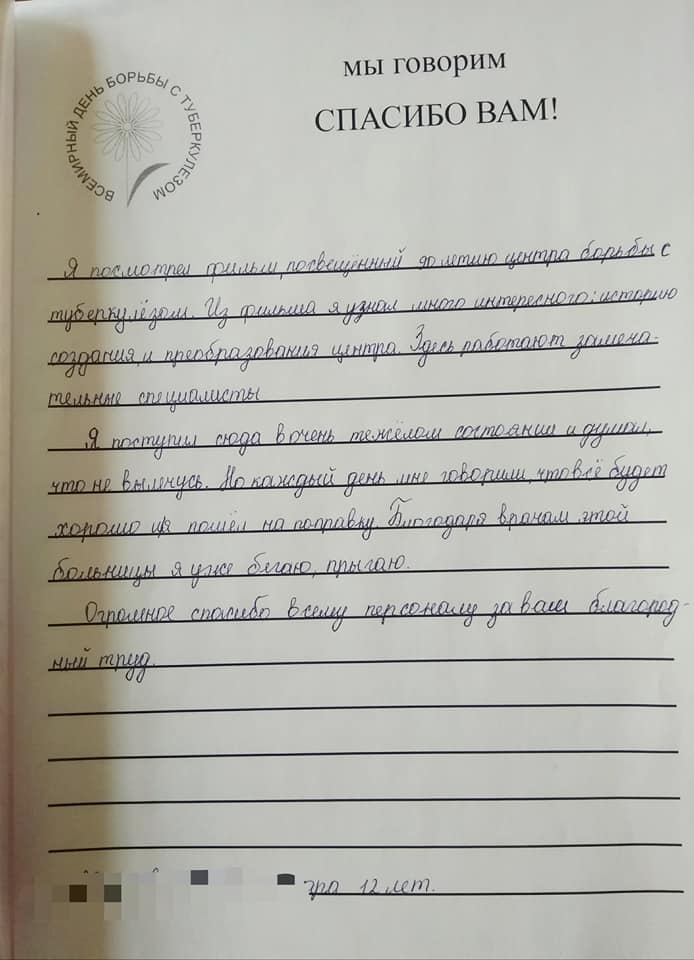 ВСЕМИРНЫЙ ДЕНЬ БОРЬБЫ С ТУБЕРКУЛЕЗОМ
мы говорим
СПАСИБО ВАМ!
Я посмотрел фильм, посвещённый 90 летию центра борьбы с
туберкулёзом. Из фильма я узнал много интересного: историю
создания, и преобразования центра. Здесь работают замеча-
тельные специалисты
Я поступил сюда в очень тяжёлом состоянии и думал,
что не вылечусь. Но каждый день мне говорили, что всё будет
хорошо и я пошёл на поправку. Благодаря врачам этой
больницы я уже бегаю, прыгаю.
Огромное спасибо всему персоналу за ваш благород-
ный труд.
12 лет.